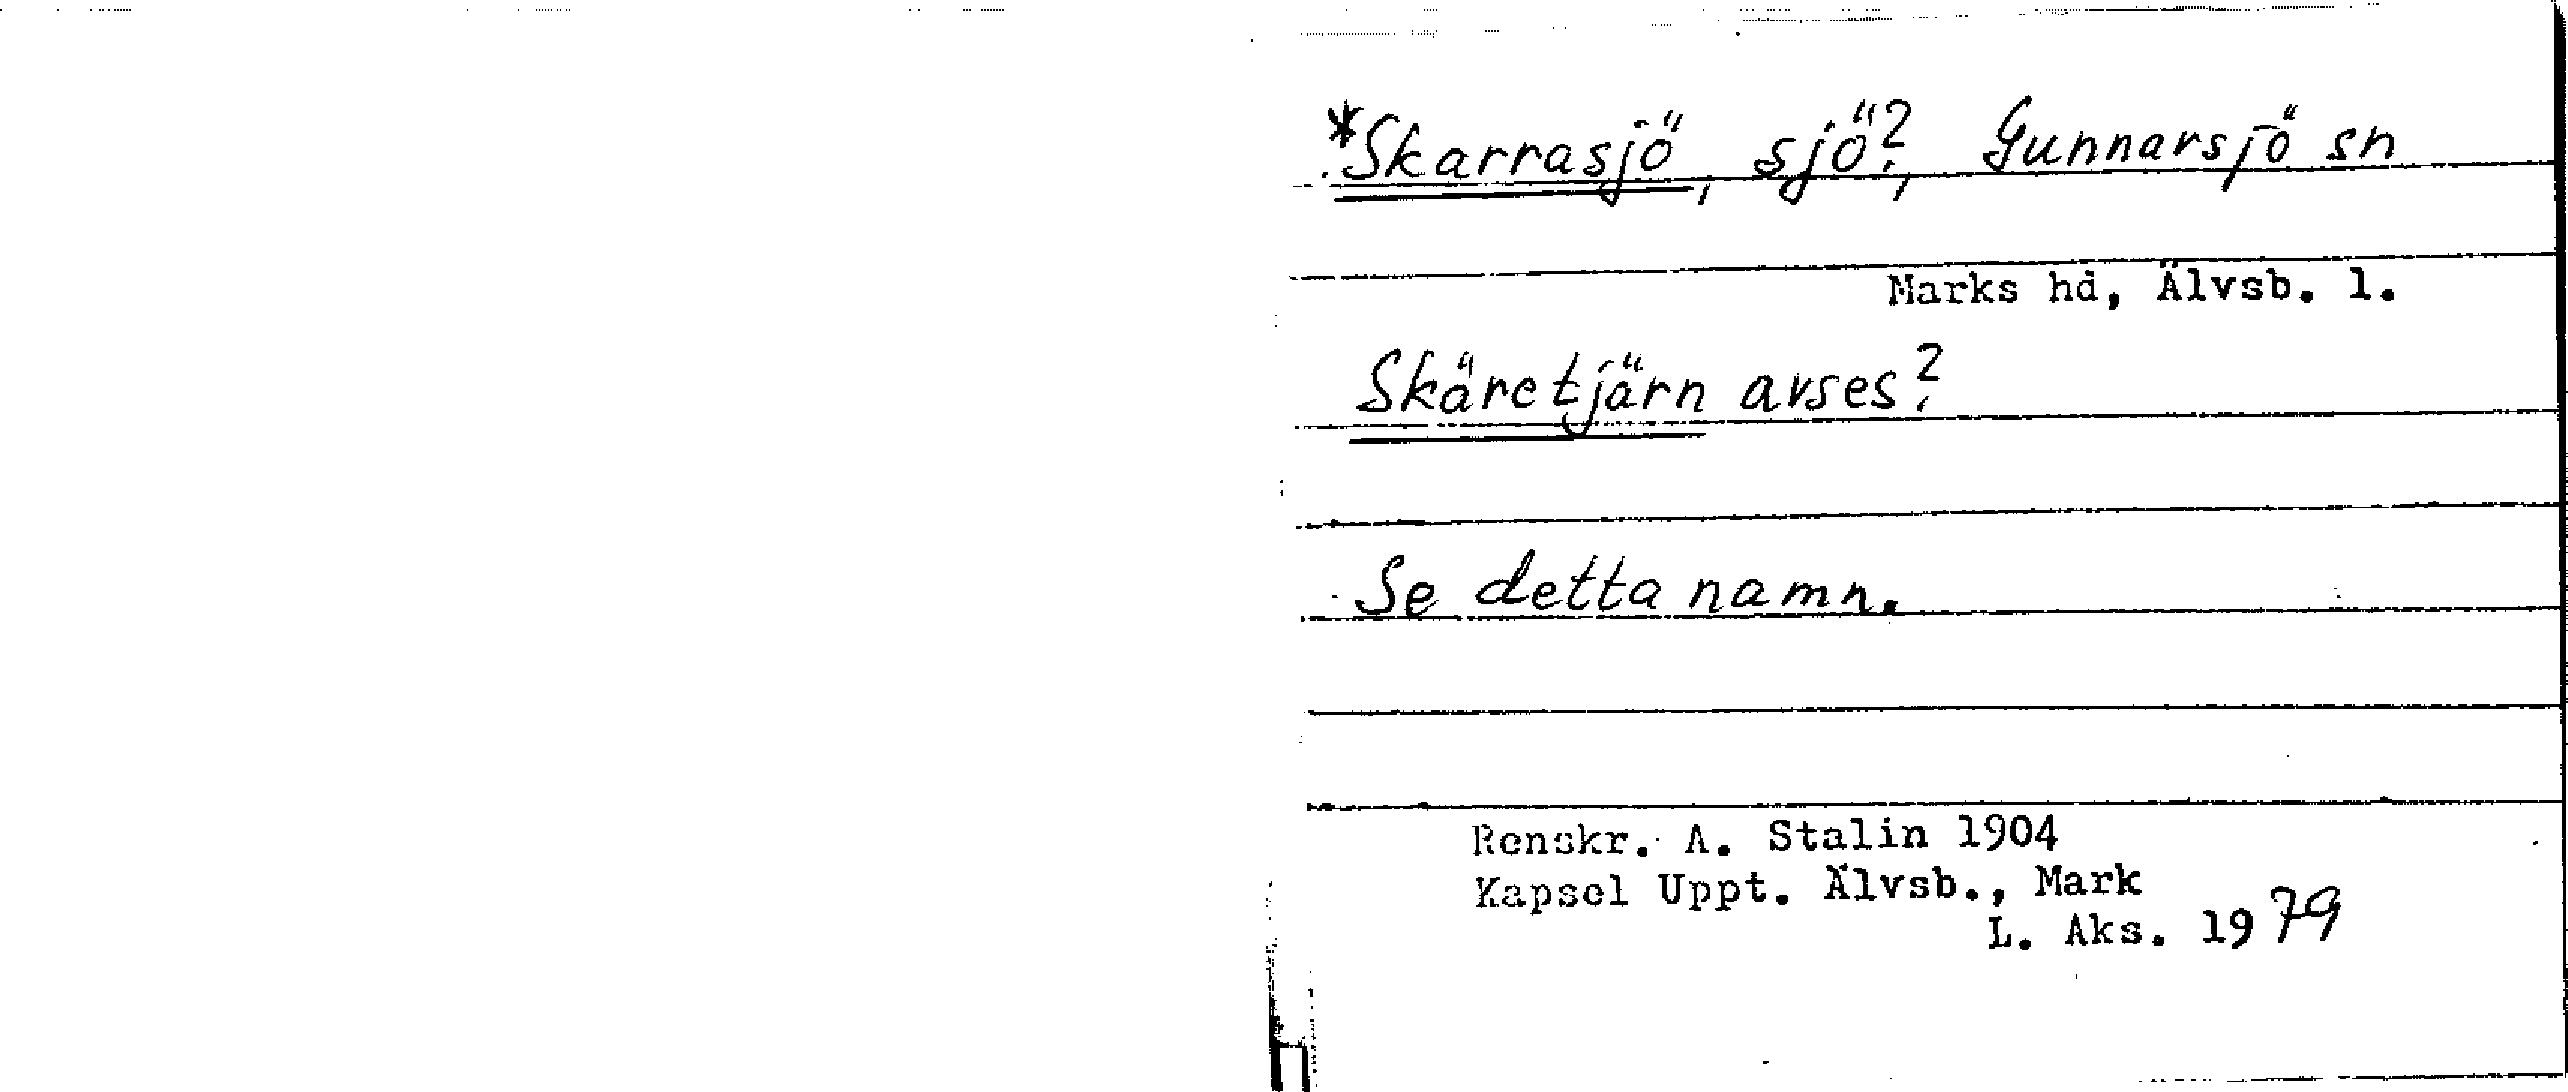 *Skarrasjö, sjö?, Gunnarsjö sn
Marks hd, Älvsb. l.
Skäretjärn avses?
Se detta namn.
Renskr. A. Stalin 1904
Kapsel Uppt. Älvsb., Mark
L. Aks. 1979